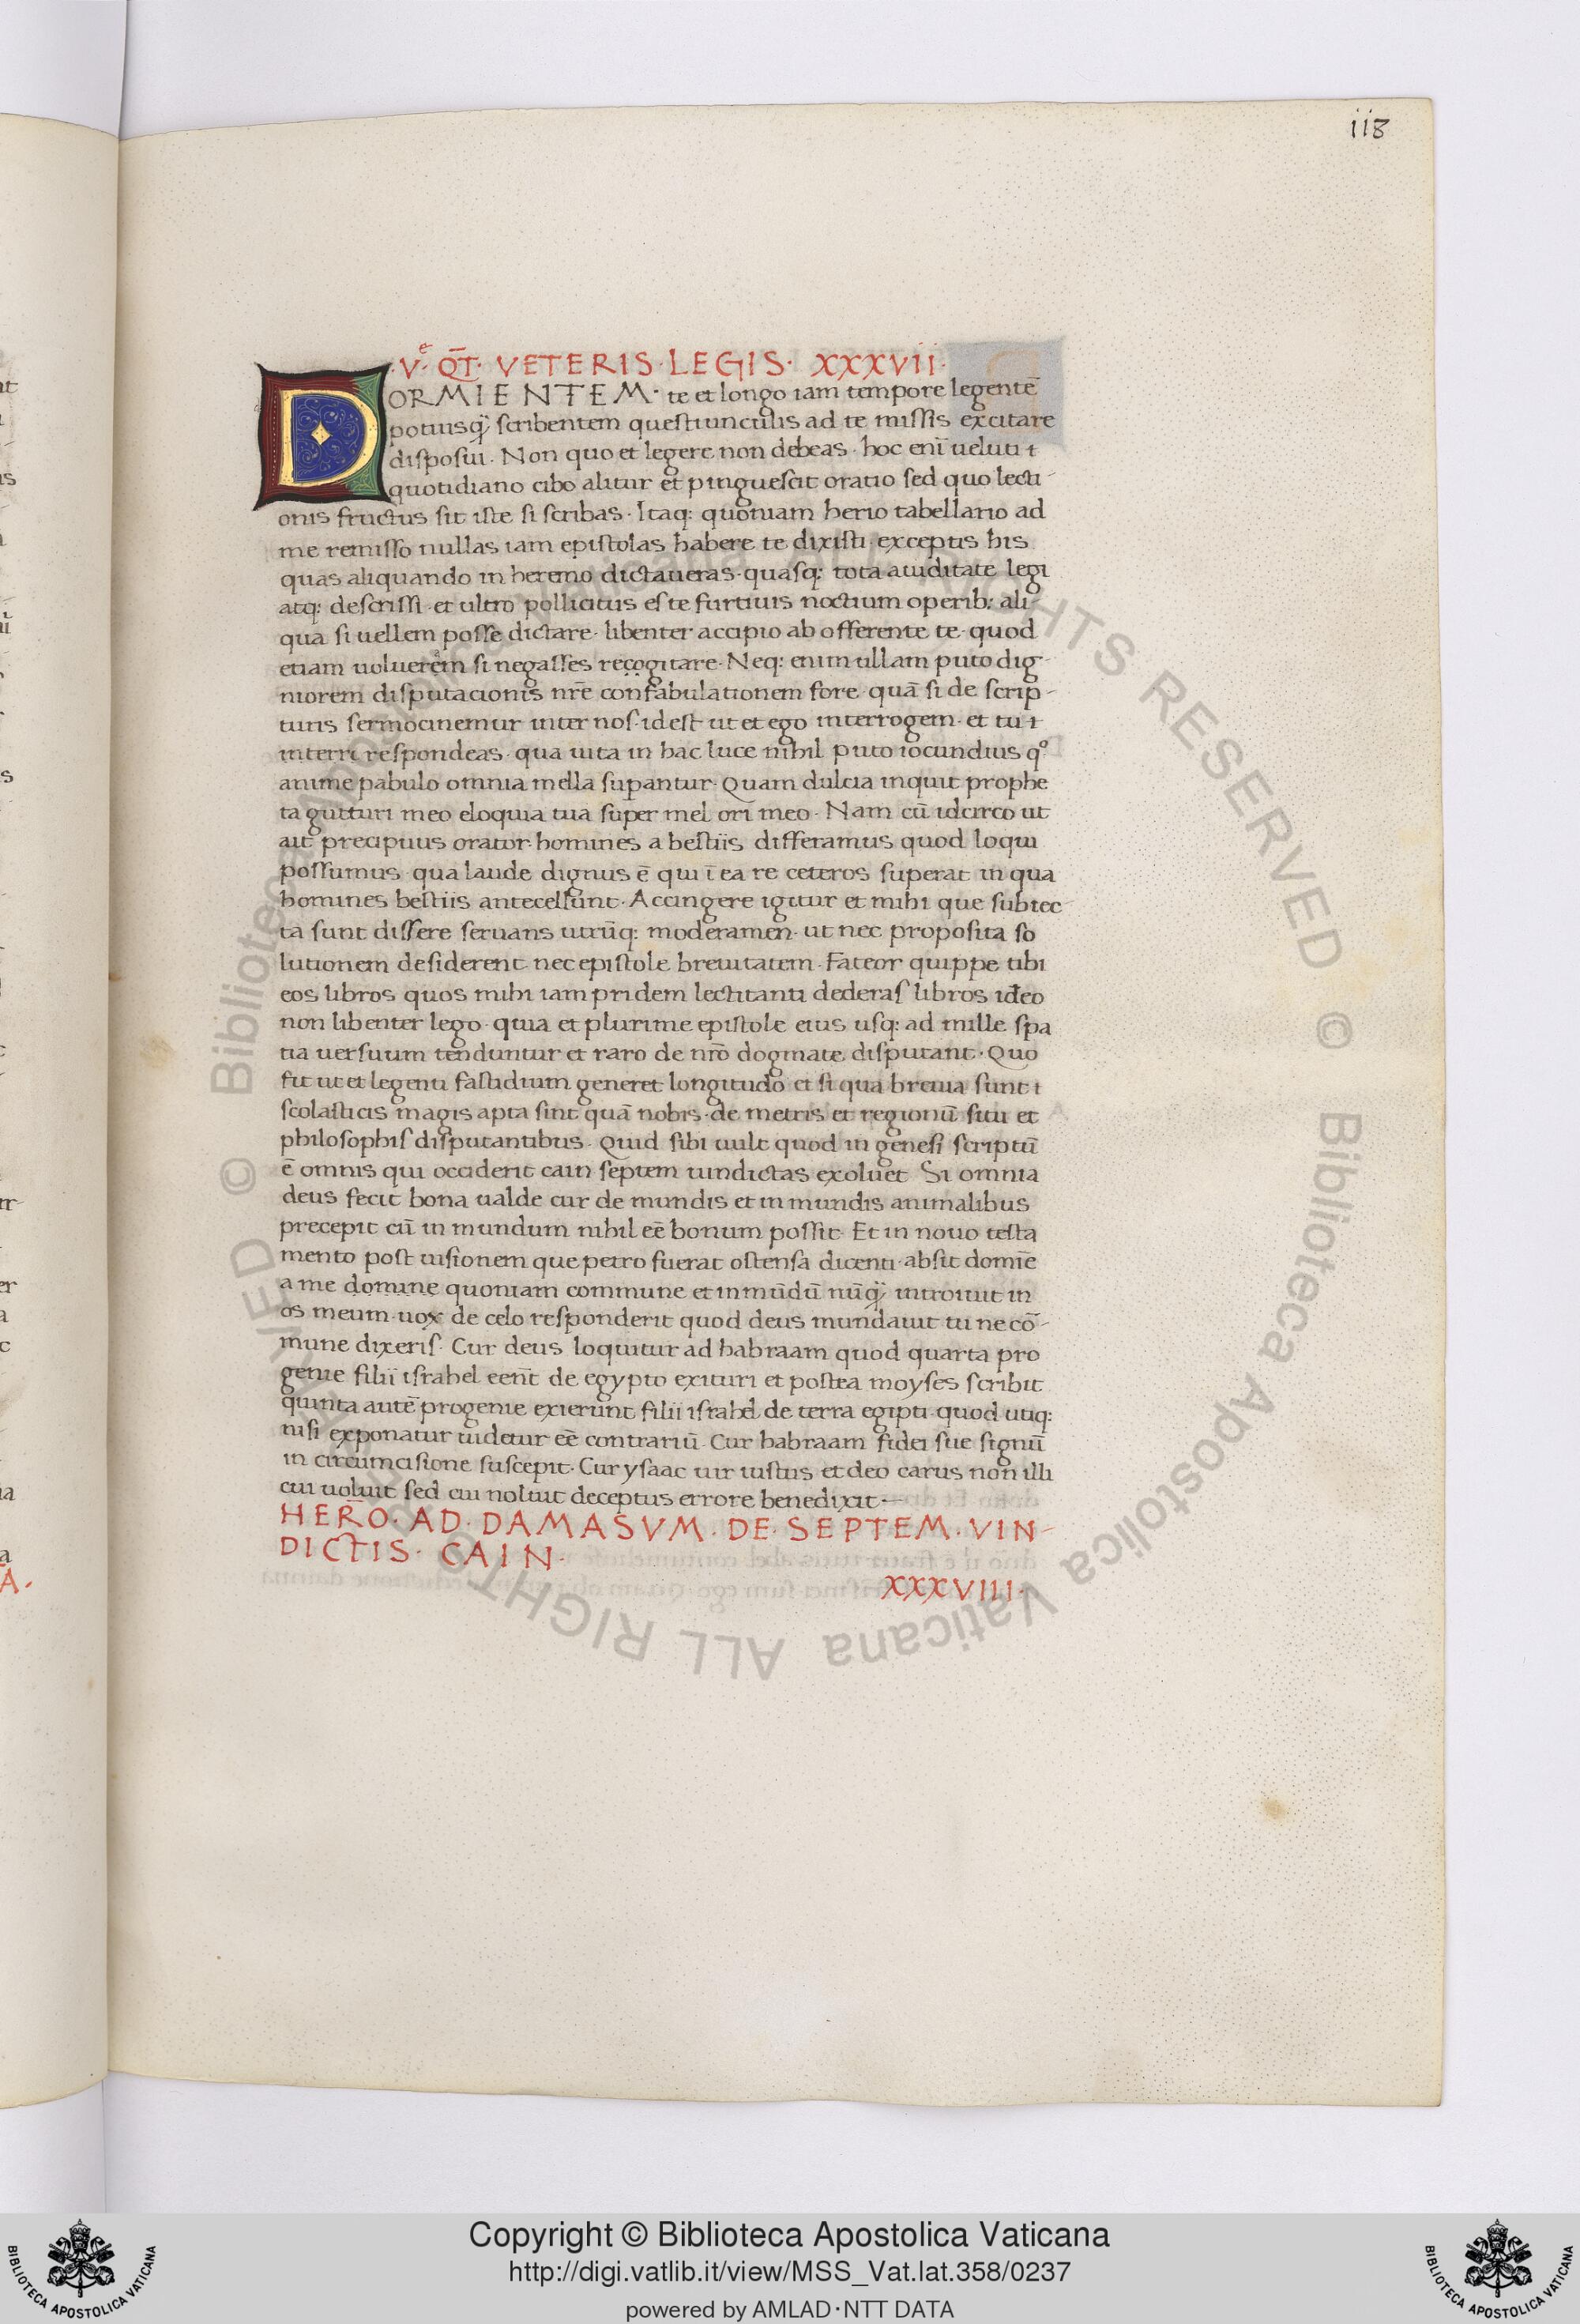 118
·Vᵉ· QT̄· VETERIS·LEGIS· XXXVII·
DORMIENTEM· te et longo iam tempore legentē
potiusq̃ scribentem questiunculis ad te missis excitare
disposui. Non quo et legere non debeas· hoc eni᷑ ueluti
quotidiano cibo alitur et pinguescit oratio sed quo lecti
onis fructus sit iste si scribas· Itaq: quoniam herio tabellario ad
me remisso nullas iam epistolas habere te dixisti· exceptis his
quas aliquando in heremo dictaueras· quasq: tota auiditate legi
atq: descrissi· et ultro pollicitus es te furtiuis noctium operib: ali-
qua si uellem posse dictare· libenter accipio ab offerente te· quod
etiam uoluerem si negasses recogitare· Neq: enim ullam puto dig-
niorem disputacionis nr̄e confabulationem fore· quā si de scrip-
turis sermocinemur inter nos· idest ut et ego interrogem· et tu
interri respondeas· qua uita in hac luce nihil puto iocundius q°
anime pabulo omnia mella supantur· Quam dulcia inquit prophe
ta gutturi meo eloquia tua super mel ori meo· Nam cū idcirco ut
ait precipuus orator homines a bestiis differamus quod loqui
possumus· qua laude dignus ē qui ī ea re ceteros superat in qua
homines bestiis antecellunt· Accingere igitur et mihi que subiec
ta sunt dissere seruans utrūq: moderamen· ut nec proposita so
lutionem desiderent nec epistole breuitatem· Fateor quippe tibi
eos libros quos mihi iam pridem lectitanti dederas libros ideo
non libenter lego· quia et plurime epistole eius usq: ad mille spa
tia uersuum tenduntur et raro de nr̄o dogmate disputant· Quo
fit ut et legenti fastidium generet longitudo et si qua breuia sunt
scolasticis magis apta sint quā nobis· de metris et regionū situ et
philosophis disputantibus· Quid sibi uult quod in genesi scriptū
ē omnis qui occiderit cain septem uindictas exoluet Si omnia
deus fecit bona ualde cur de mundis et in mundis animalibus
precepit cū in mundum nihil eē bonum possit· Et in nouo testa
mento post uisionem que petro fuerat ostensa dicenti· absit domīe
a me domine quoniam commune et inmūdū nūq̃ introiuit in
os meum· uox de celo responderit quod deus mundauit tu ne cō-
mune dixeris· Cur deus loquitur ad habraam quod quarta pro
genie filii israhel eēnt de egypto exituri et postea moyses scribit
quinta autē progenie exierunt filii israhel de terra egipti· quod utiq:
nisi exponatur uidetur eē contrariū· Cur habraam fidei sue signū
in circumcisione suscepit· Cur ysaac uir iustus et deo carus non illi
cui uoluit sed cui noluit deceptus errore benedixit·
HER̄O· AD· DAMASVM· DE· SEPTEM· VIN-
DICTIS· CAIN·
XXXVIII·
© Biblioteca Apostolica Vaticana ALL RIGHTS RESERVED © Biblioteca Apostolica Vaticana ALL RIGHTS RESERVED
Copyright © Biblioteca Apostolica Vaticana
http://digi.vatlib.it/view/MSS_Vat.lat.358/0237
powered by AMLAD·NTT DATA
BIBLIOTECA APOSTOLICA VATICANA
BIBLIOTECA APOSTOLICA VATICANA